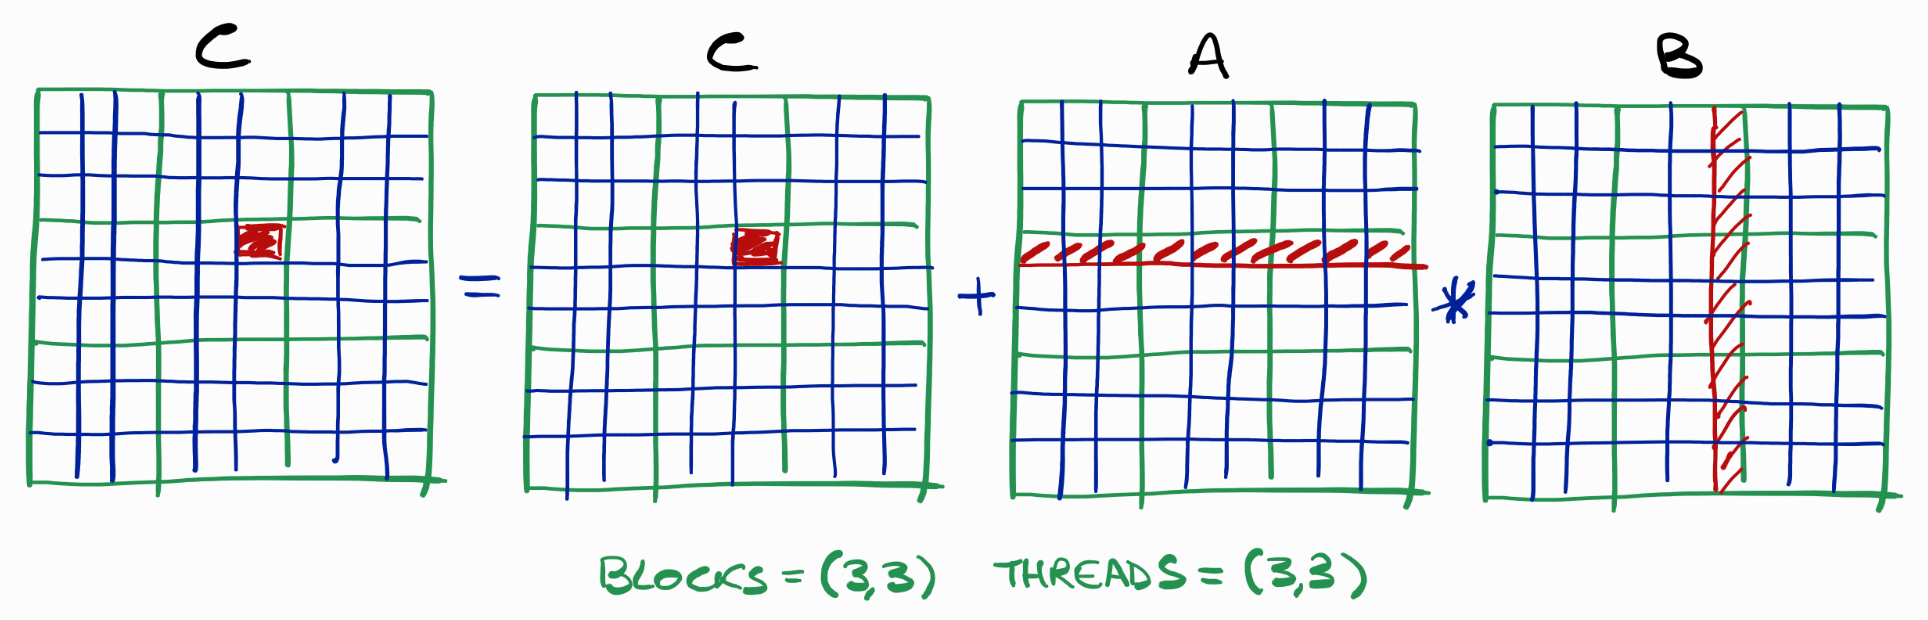 C C A B
= + *
BLOCKS = (3,3) THREADS = (3,3)